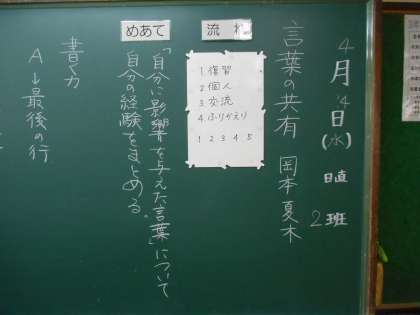 4月14日(水)
日直 2班
言葉の共有 岡本夏木
流れ
1.復習
2個人
3交流
4.ふりかえり
1 2 3 4 5
めあて
「自分に影響を与えた言葉」について
自分の経験をまとめる。
書き方
A↓最後の行